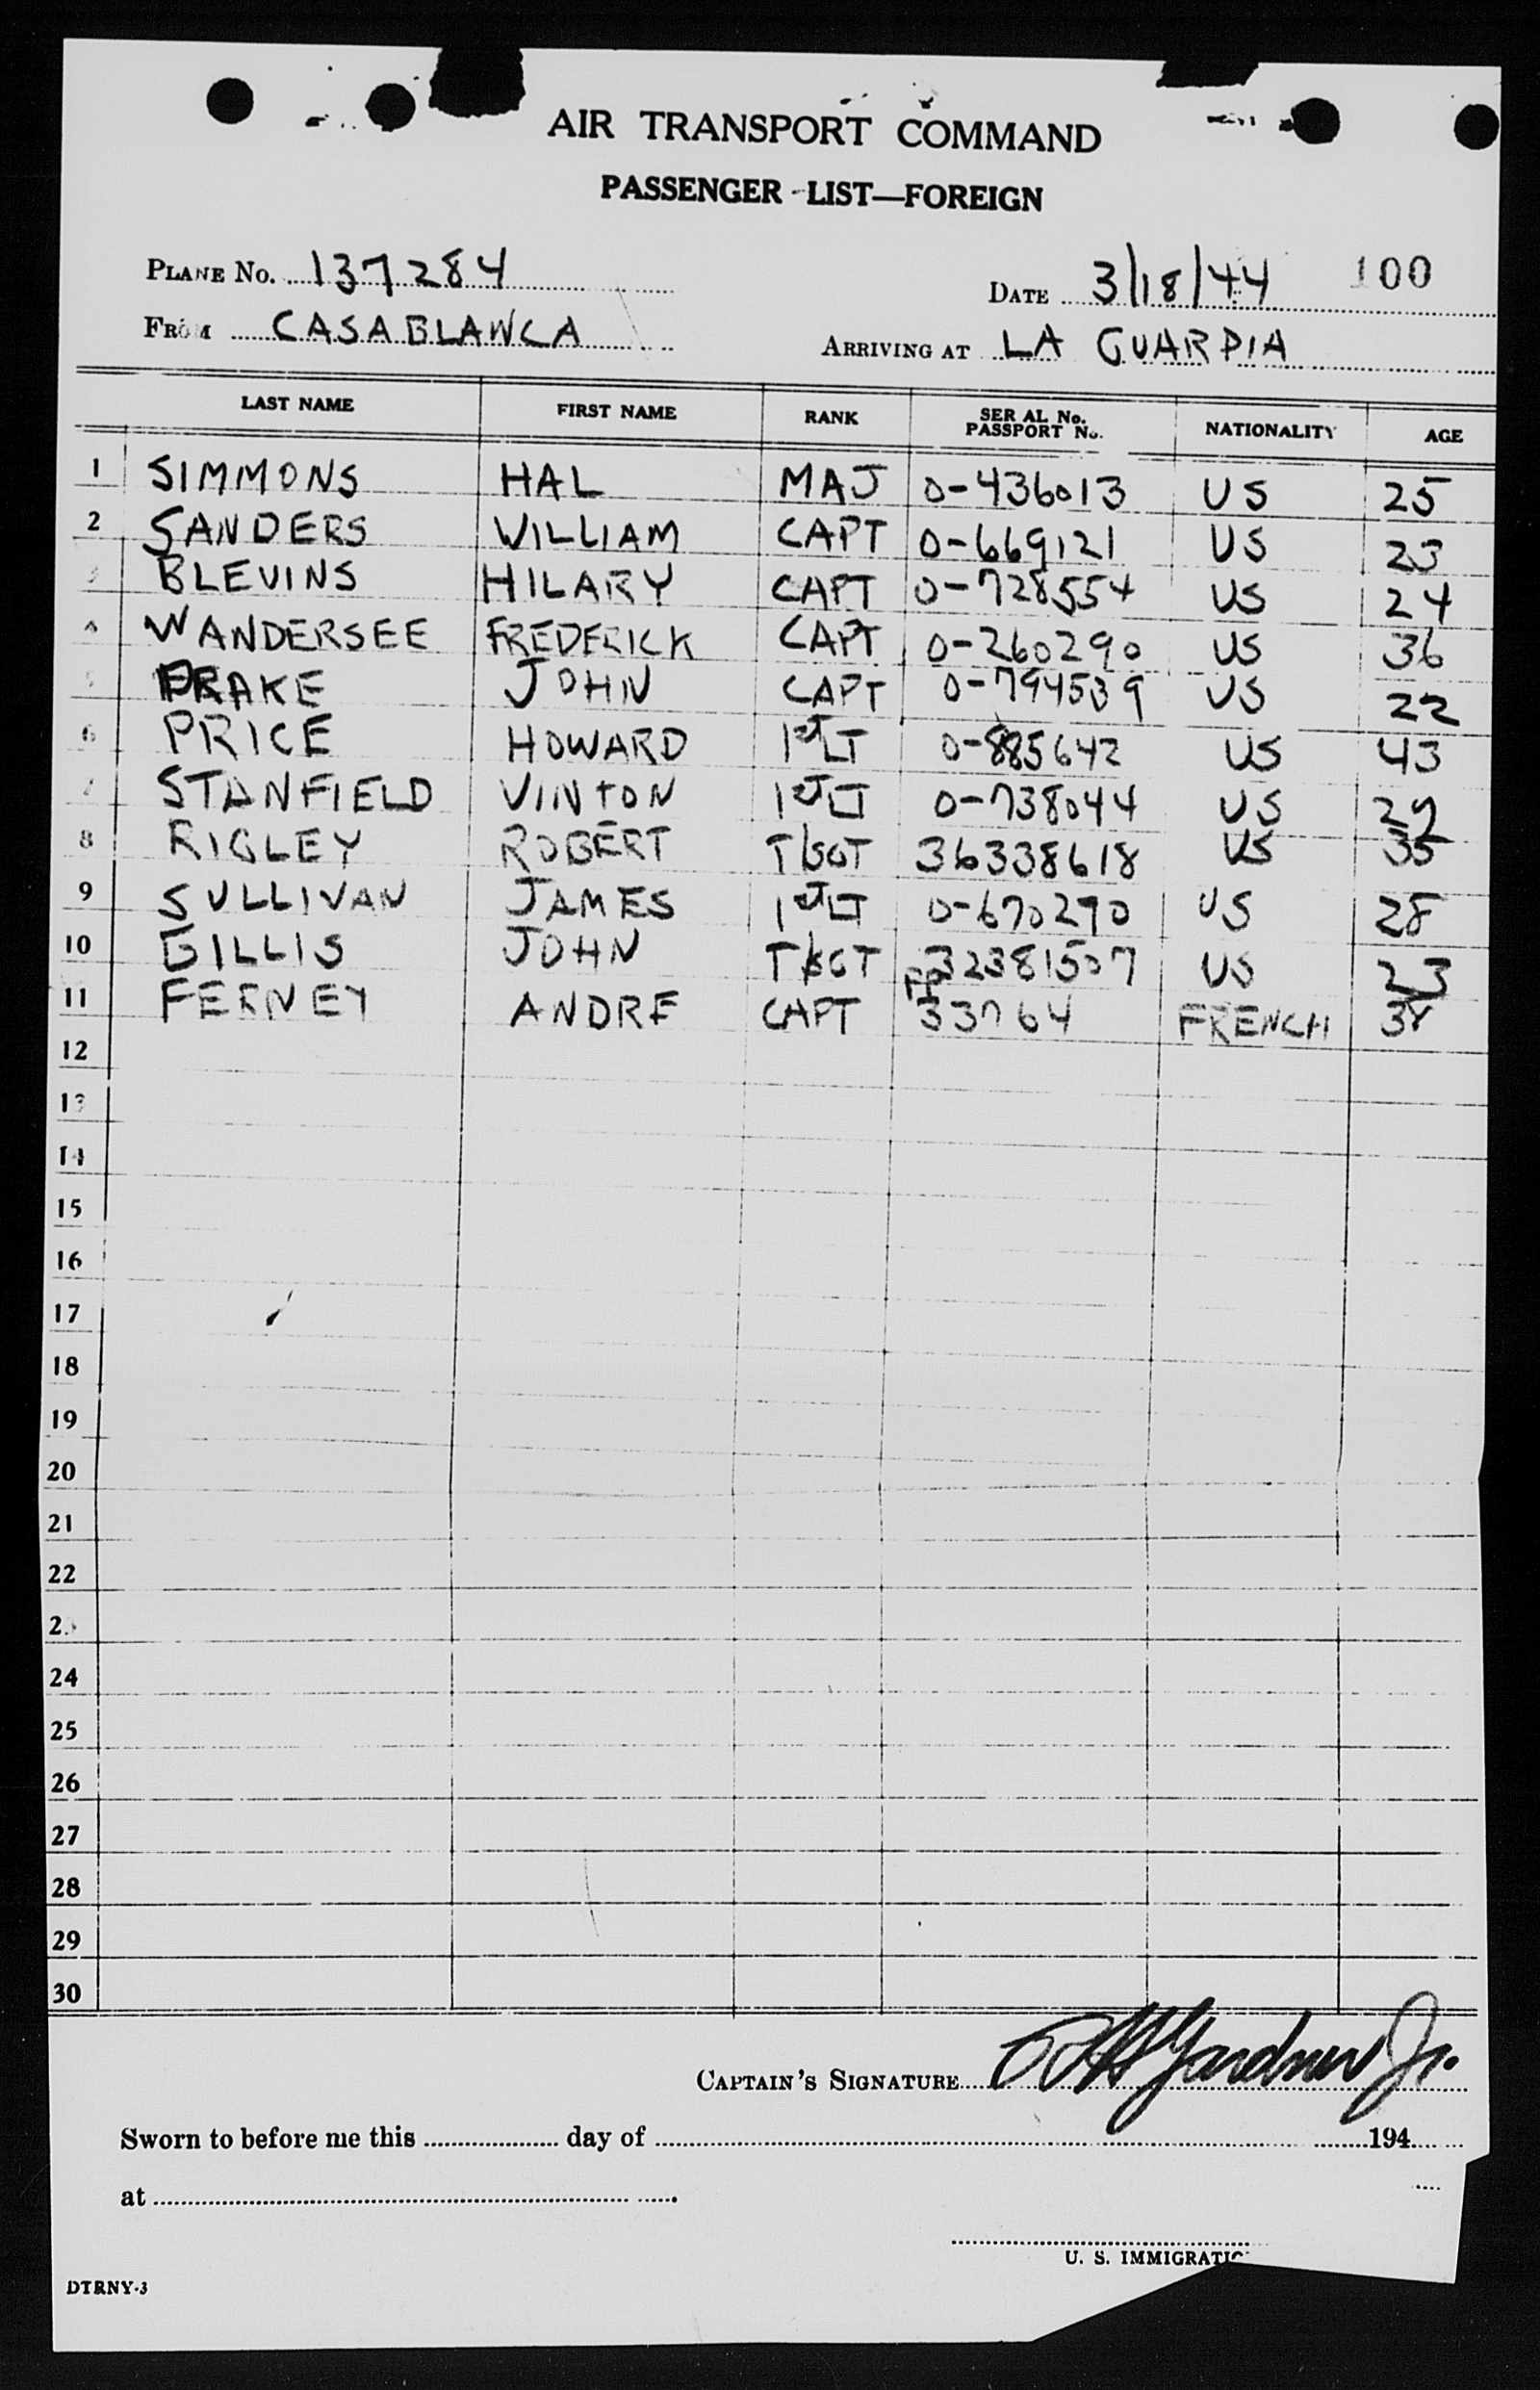 AIR TRANSPORT COMMAND
PASSENGER LIST—FOREIGN
PLANE No. 137284
DATE 3/18/44 100
FROM CASABLANCA
ARRIVING AT LA GUARDIA
LAST NAME FIRST NAME RANK SERIAL No. PASSPORT No. NATIONALITY AGE
1 SIMMONS HAL MAJ O-436013 US 25
2 SANDERS WILLIAM CAPT O-669121 US 23
3 BLEVINS HILARY CAPT O-728554 US 24
4 WANDERSEE FREDERICK CAPT O-260290 US 36
5 DRAKE JOHN CAPT O-794539 US 22
6 PRICE HOWARD 1ST LT O-885642 US 43
7 STANFIELD VINTON 1ST LT O-738044 US 29
8 RIGLEY ROBERT T/SGT 36338618 US 35
9 SULLIVAN JAMES 1ST LT O-670290 US 28
10 GILLIS JOHN T/SGT 32381507 US 23
11 FERNEY ANDRE CAPT PP 33764 FRENCH
12
13
14
15
16
17
18
19
20
21
22
2
24
25
26
27
28
29
30
CAPTAIN'S SIGNATURE Gardner Jr.
Sworn to before me this day of 194
at
U. S. IMMIGRATIO
DTRNY-3